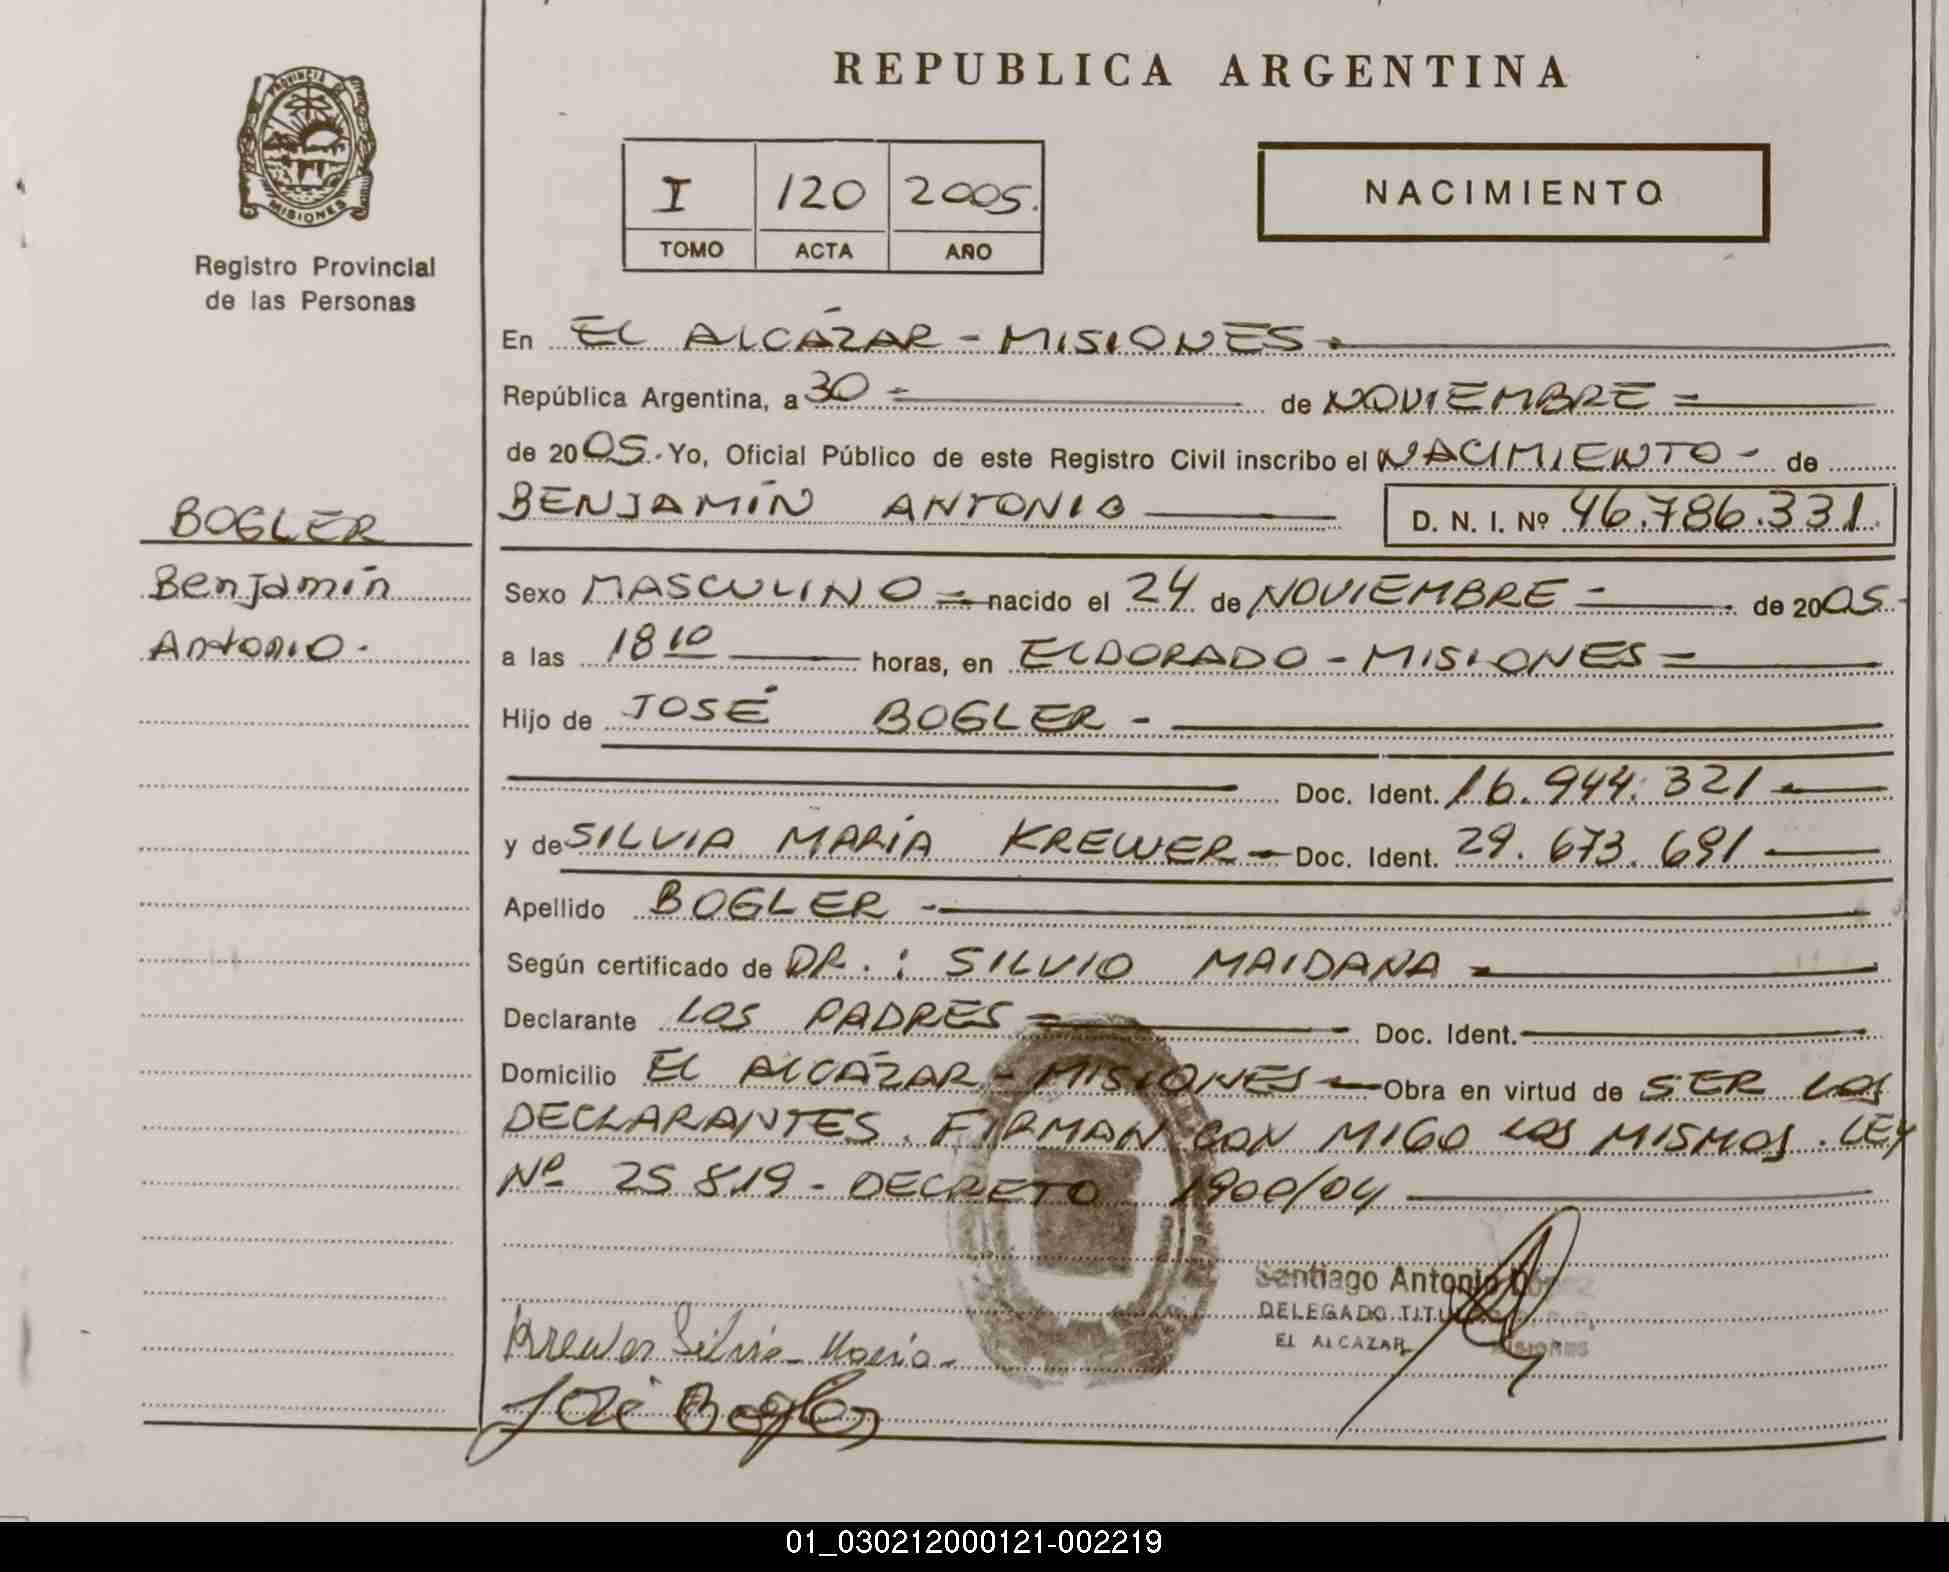 REPUBLICA ARGENTINA
PROVINCIA DE MISIONES
Registro Provincial
de las Personas
I 120 2005.
TOMO ACTA AÑO
NACIMIENTO
En EL ALCÁZAR - MISIONES.
República Argentina, a 30 = de NOVIEMBRE =
de 2005. Yo, Oficial Público de este Registro Civil inscribo el NACIMIENTO - de
BENJAMÍN ANTONIO D. N. I. Nº 46.786.331.
BOGLER
Benjamín
Antonio.
Sexo MASCULINO = nacido el 24 de NOVIEMBRE = de 2005.
a las 18 10 horas, en ELDORADO - MISIONES =
Hijo de JOSÉ BOGLER -
Doc. Ident. 16.944.321
y de SILVIA MARÍA KREWER - Doc. Ident. 29.673.691
Apellido BOGLER -
Según certificado de DR. : SILVIO MAIDANA =
Declarante LOS PADRES = Doc. Ident.
Domicilio EL ALCÁZAR - MISIONES - Obra en virtud de SER LOS
DECLARANTES. FIRMAN CON MIGO LOS MISMOS. LEY
Nº 25819 - DECRETO 1900/04
Santiago Antonio
DELEGADO
EL ALCAZAR MISIONES
Krewer Silvia María.
José Bogler
01_030212000121-002219